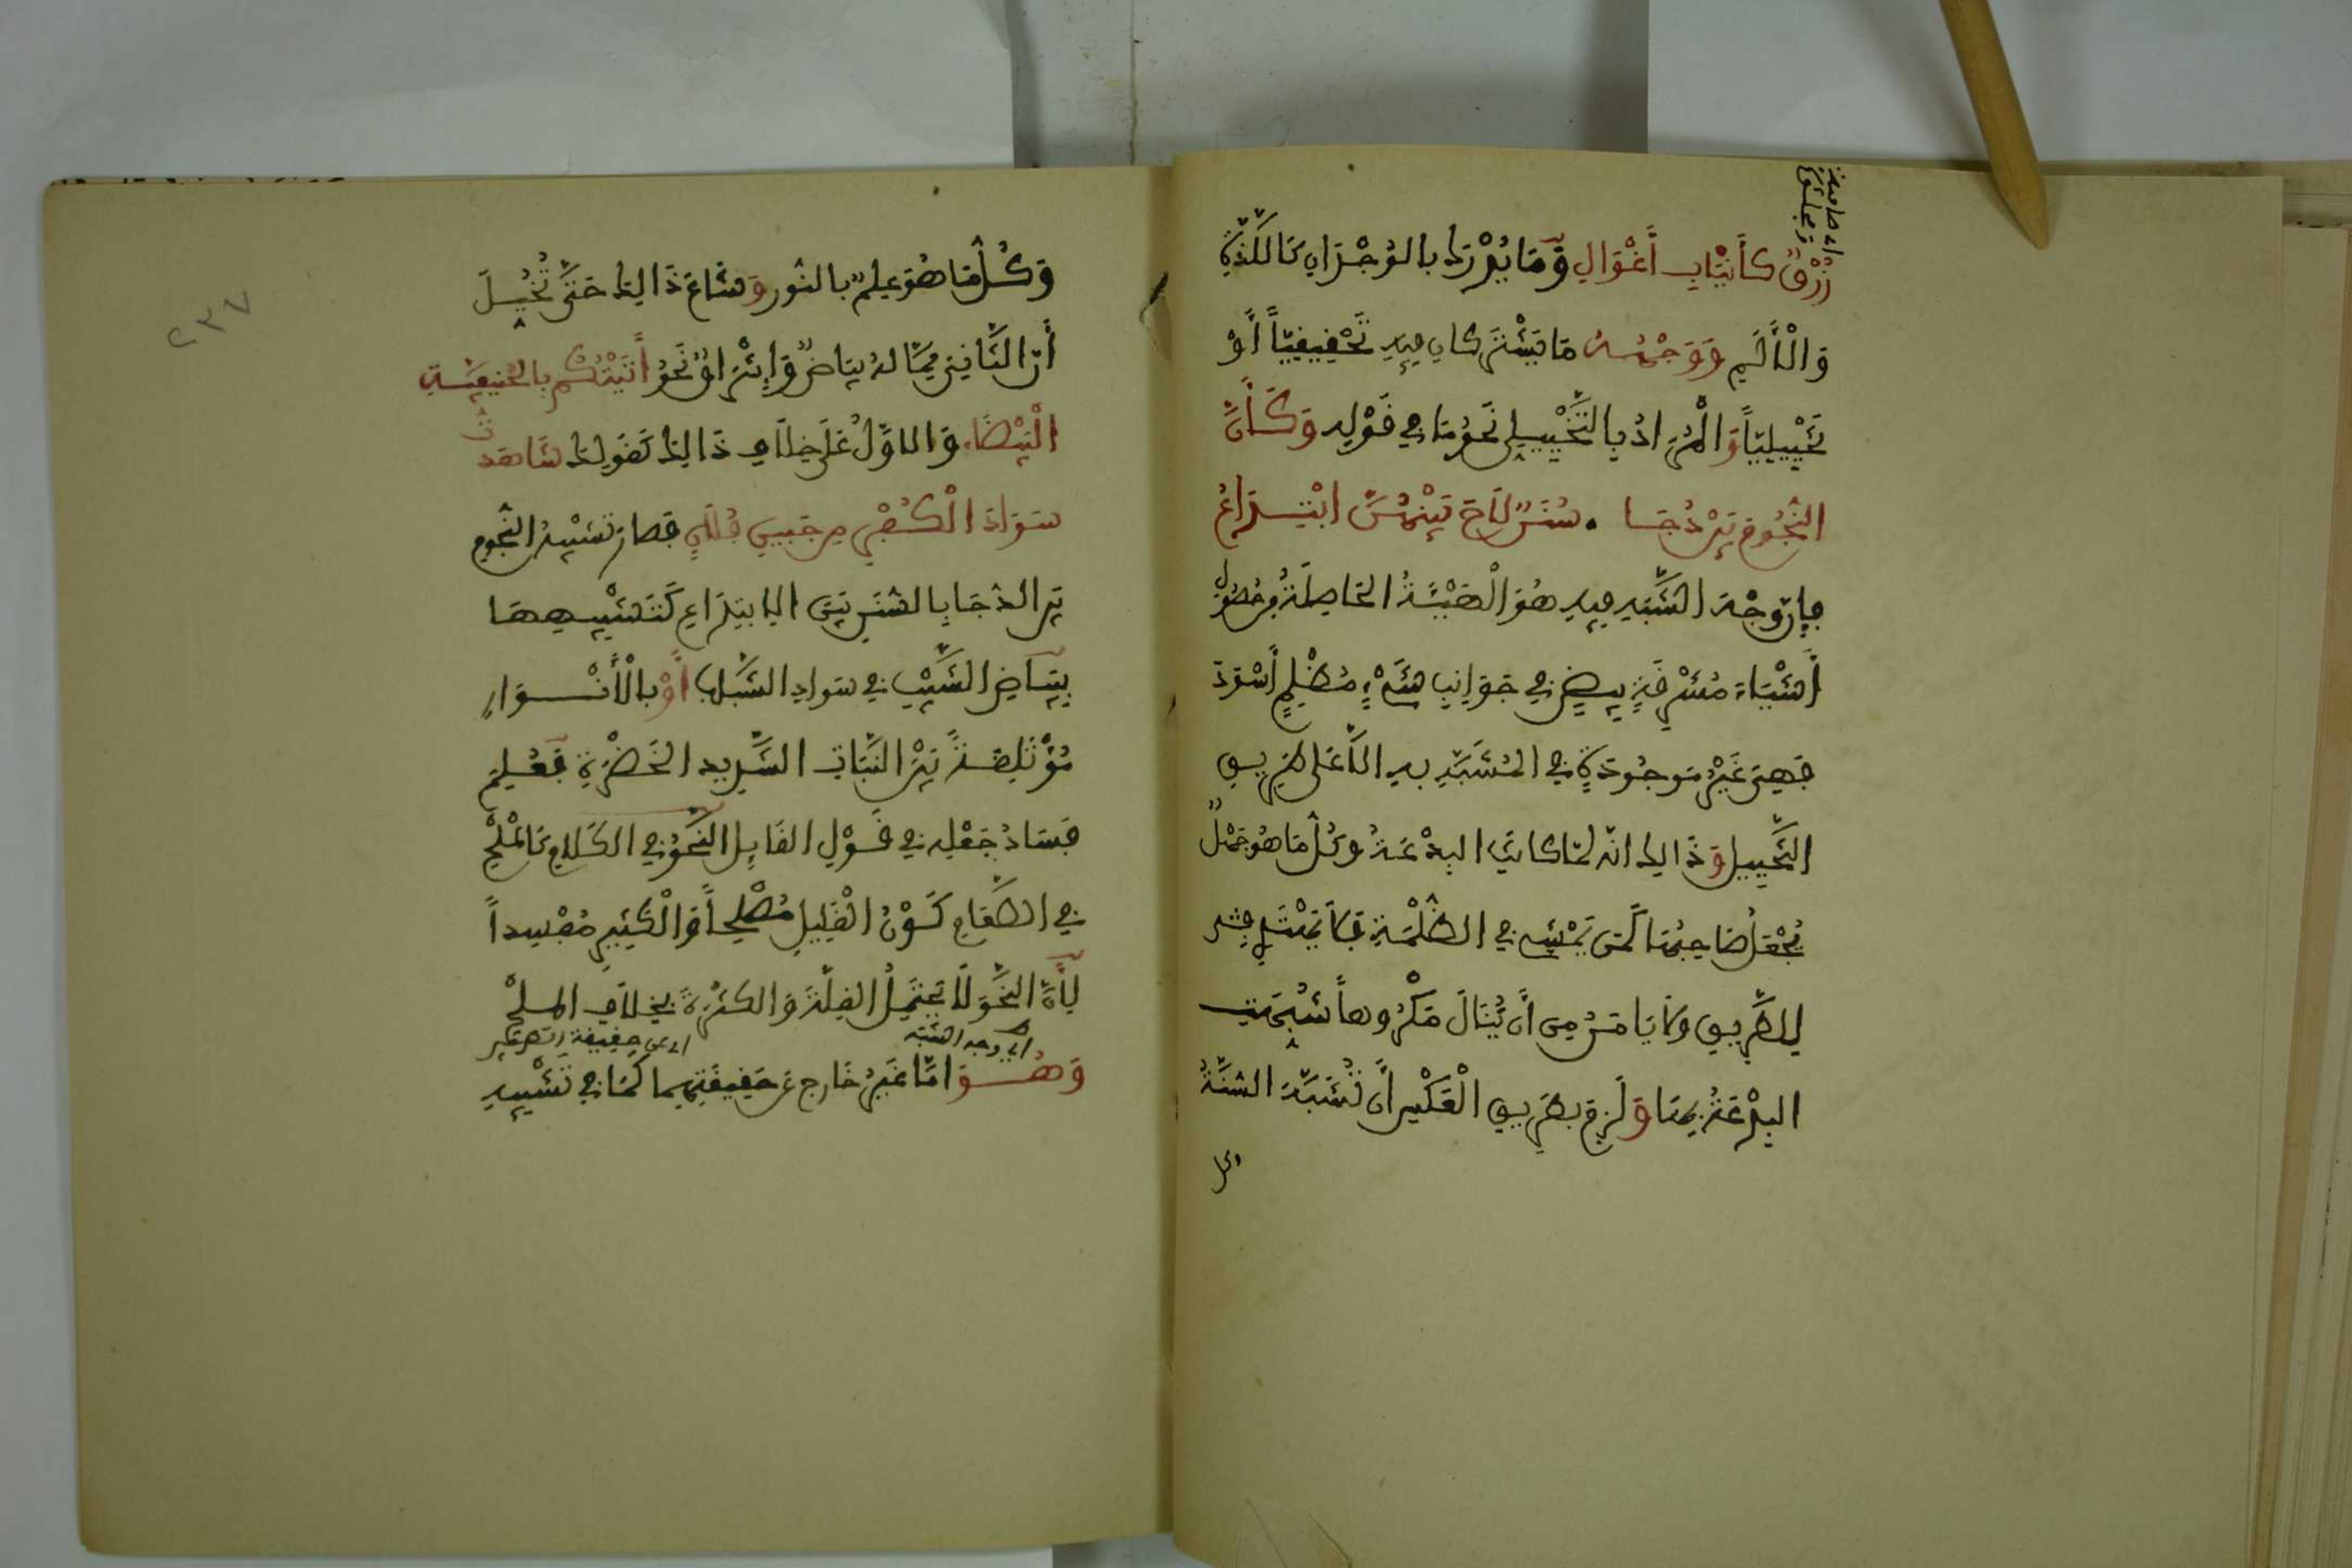 اي صافية مجلوة
زُرْقٌ كأَنْيَابِ أَغْوَالِ وَمَا يُدْرَك بالوُجْدَانِ كَاللَّذَّةِ
وَالْأَلَمِ وَوَجْهُهُ مَا يَشْتَرِكانِ فِيهِ تَحْقِيقِيّاً أَوْ
تَخْيِيلِيّاً وَالْمُرَادُ بِالتَّخْيِيلِي نَحْوُ مَا فِي قَوْلِهِ وَكَأَنَّ
النُّجُومَ بَيْنَ دُجَا . سُنَنٌ لَاحَ بَيْنَهُنَّ ابْتِدَاعُ
فإن وَجْهَ الشَّبَهِ فِيهِ هُوَ الْهَيْئَةُ الحَاصِلَةُ مِن حُصُولِ
أَشْيَاءَ مُشْرِقَةٍ بِيضٍ فِي جَوَانِبِ شَيْءٍ مُظْلِمٍ أَسْوَدَ
فَهِيَ غَيْرُ مَوجُودَةٍ فِي المُشَبَّهِ بِهِ الَّا عَلى طَرِيقِ
التَّخْيِيلِ وَذَالِك انّه لمّا كانَتِ البِدْعَةُ وكُلُّ مَا هُوَ جَهْلٌ
يُجْعَلُ صَاحِبُهَا كَمَن يَمْشِي فِي الظُّلْمَةِ فَلَا يَهْتَدِي
لِلطَّرِيقِ وَلَا يَامَنُ مِن أَن يُنَالَ مَكْرُوهاً شُبِّهَتِ
البِدْعَةُ بِهَا وَلَزِمَ بِطَرِيقِ الْعَكْسِ أَن تُشَبَّهَ السُّنَّةُ
وكل
٢٣٧
وَكُلُّ مَا هُوَ عِلْمٌ بالنُّورِ وَشَاعَ ذَالِك حَتَّى تُخُيِّلَ
أَنّ الثَّانِيَ مِمَّا لَهُ بَيَاضٌ وَإِشْرَاقٌ نَحْوُ أَتَيْتُكُم بِالحَنِيفِيَّةِ
الْبَيْضَاءِ وَالاوَّلُ عَلَى خِلَافِ ذَالِك كَقَولِك شَاهَدتُّ
سَوَادَ الْكُفْرِ مِن جَبِينِ فُلَانٍ فصارَ تَشْبِيهُ النُّجُومِ
بَيْنَ الدُّجَا بِالسُّنَنِ بَيْنَ الابْتِدَاعِ كَتَشْبِيهِهَا
بِبَيَاضِ الشَّيْبِ فِي سَوَادِ الشَّبَابِ أَوْ بِالْأَنْوَارِ
مُؤْتَلِقَةً بَيْنَ النَّبَاتِ الشَّدِيدِ الخَضْرَةِ فَعُلِمَ
فَسَادُ جَعْلِهِ فِي قَوْلِ القَايِلِ النَّحْوُ فِي الكَلَامِ كَالمِلْحِ
فِي الطَّعَامِ كَوْنُ الْقَلِيلِ مُصْلِحاً وَالْكَثِيرِ مُفْسِداً
لِأَنَّ النَّحْوَ لَا يَحْتَمِلُ القِلَّةَ وَالكَثْرَةَ بِخِلَافِ المِلْحِ
اي وجه الشبه
اي عن حقيقة الطرفين
وَهُوَ امَّا غَيْرُ خَارِجٍ عَن حَقِيقَتِهِمَا كَمَا فِي تَشْبِيهِ